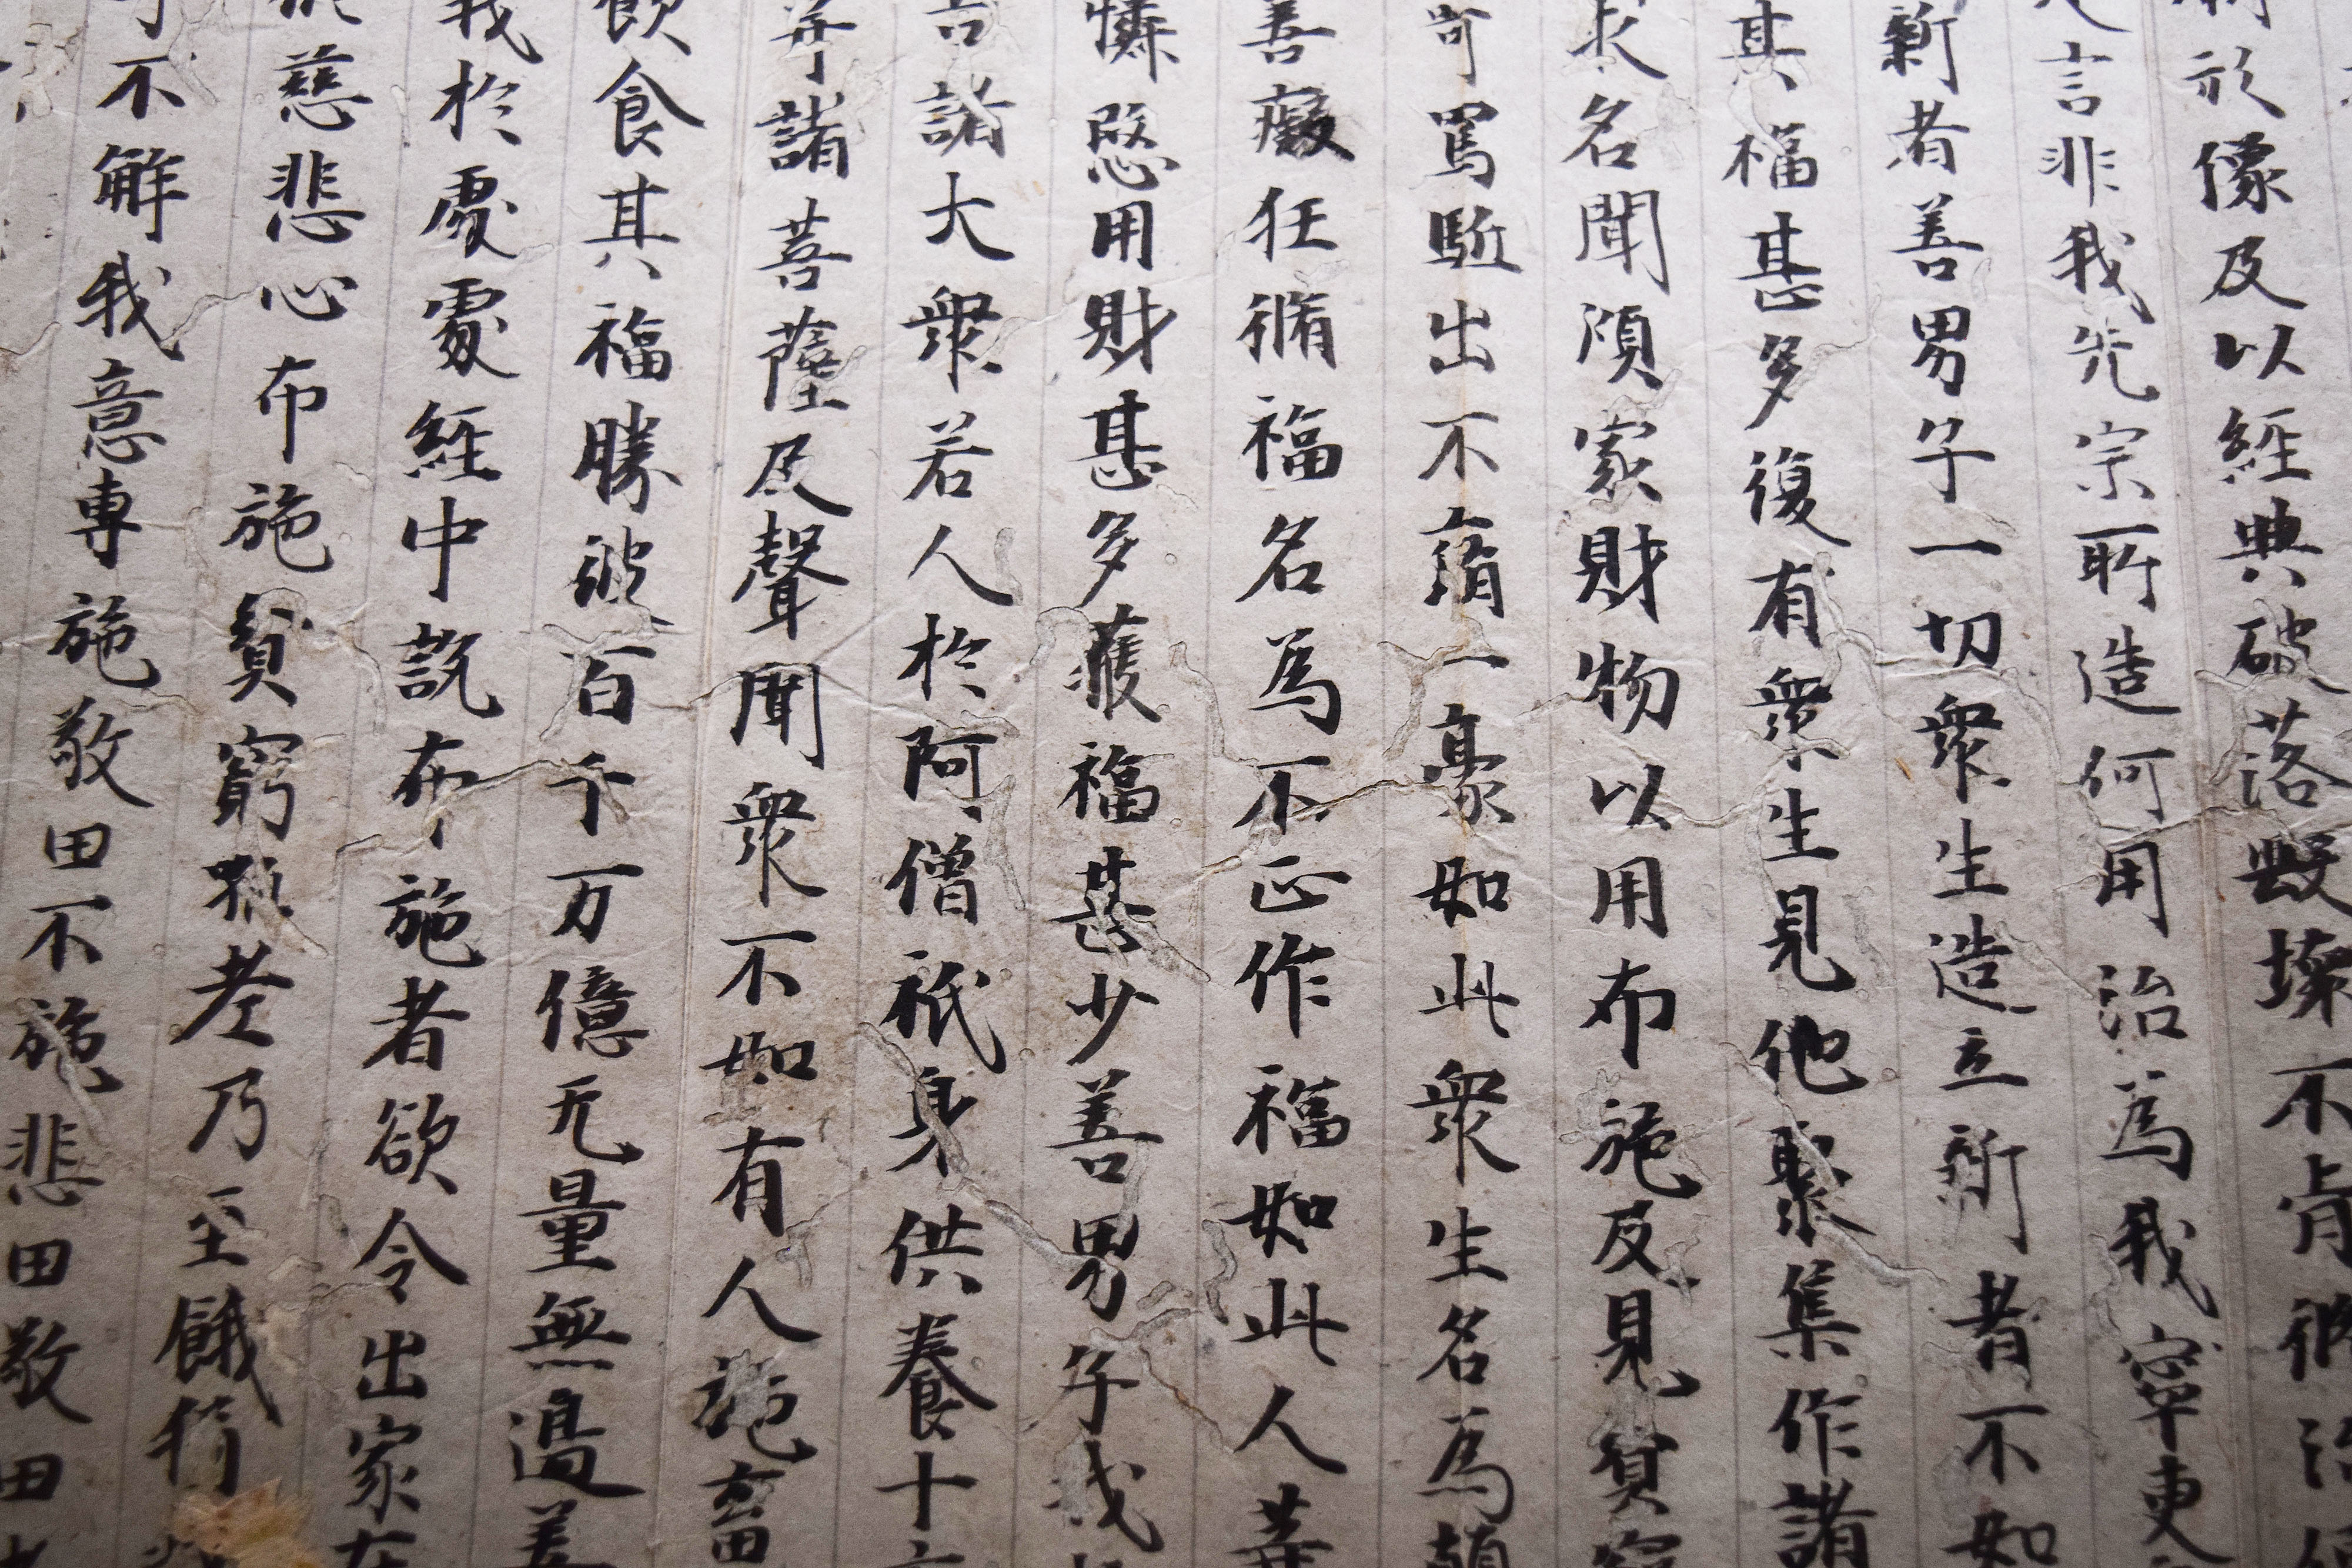 於像及以經典破落毀壞不肯脩治
言非我先宗所造何用治為我寧更
新者善男子一切眾生造立新者不如
其福甚多復有眾生見他聚集作諸
求名聞傾家財物以用布施及見貧窮
可罵驅出不濟一豪如此眾生名為顛
善癡狂脩福名為不正作福如此人等
憐愍用財甚多獲福甚少善男子我
言諸大眾若人於阿僧祇身供養十
等諸菩薩及聲聞眾不如有人施畜
飲食其福勝彼百千万億无量無邊善
我於處處經中說布施者欲令出家在
慈悲心布施貧窮孤老乃至餓狗
不解我意專施敬田不施悲田敬田